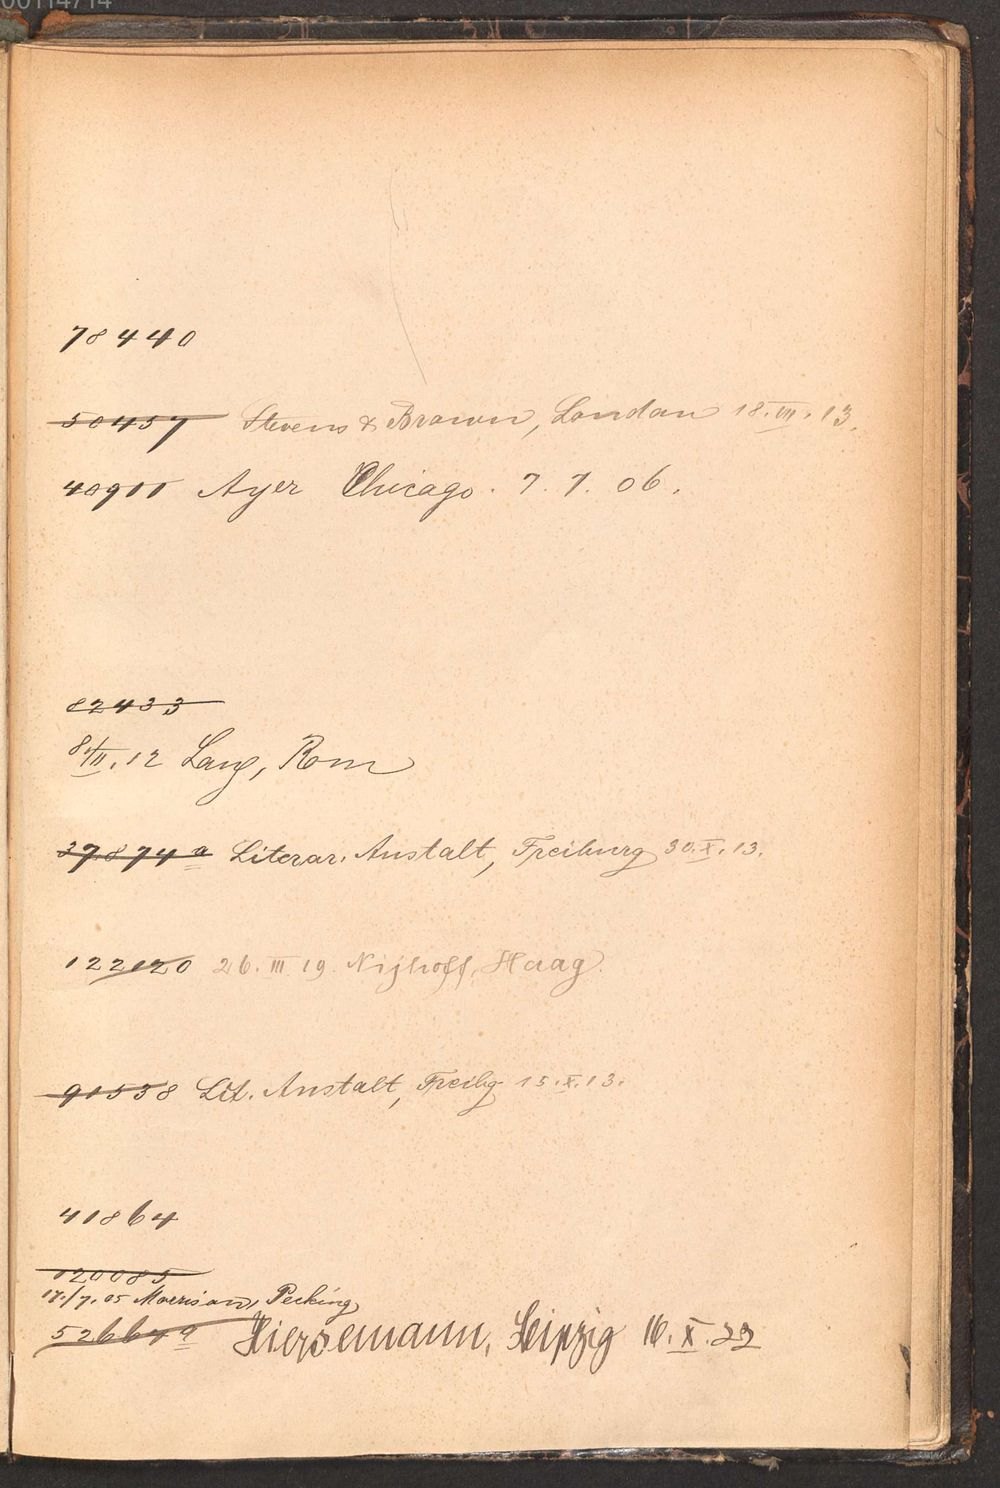 78440
50457 Stevens & Brown, London 18.VII.13.
40900 Ayer Chicago. 7. 7. 06.
82433
8/II.12 Lang, Rom
37874a Literar. Anstalt, Freiburg 30.X.13.
122120 26.III.19. Nijhoff, Haag.
91538 Lit. Anstalt, Freibg 15.X.13.
41864
120085
17./7.05 Morrison, Pecking
52664a Hiersemann, Leipzig 16.X.22